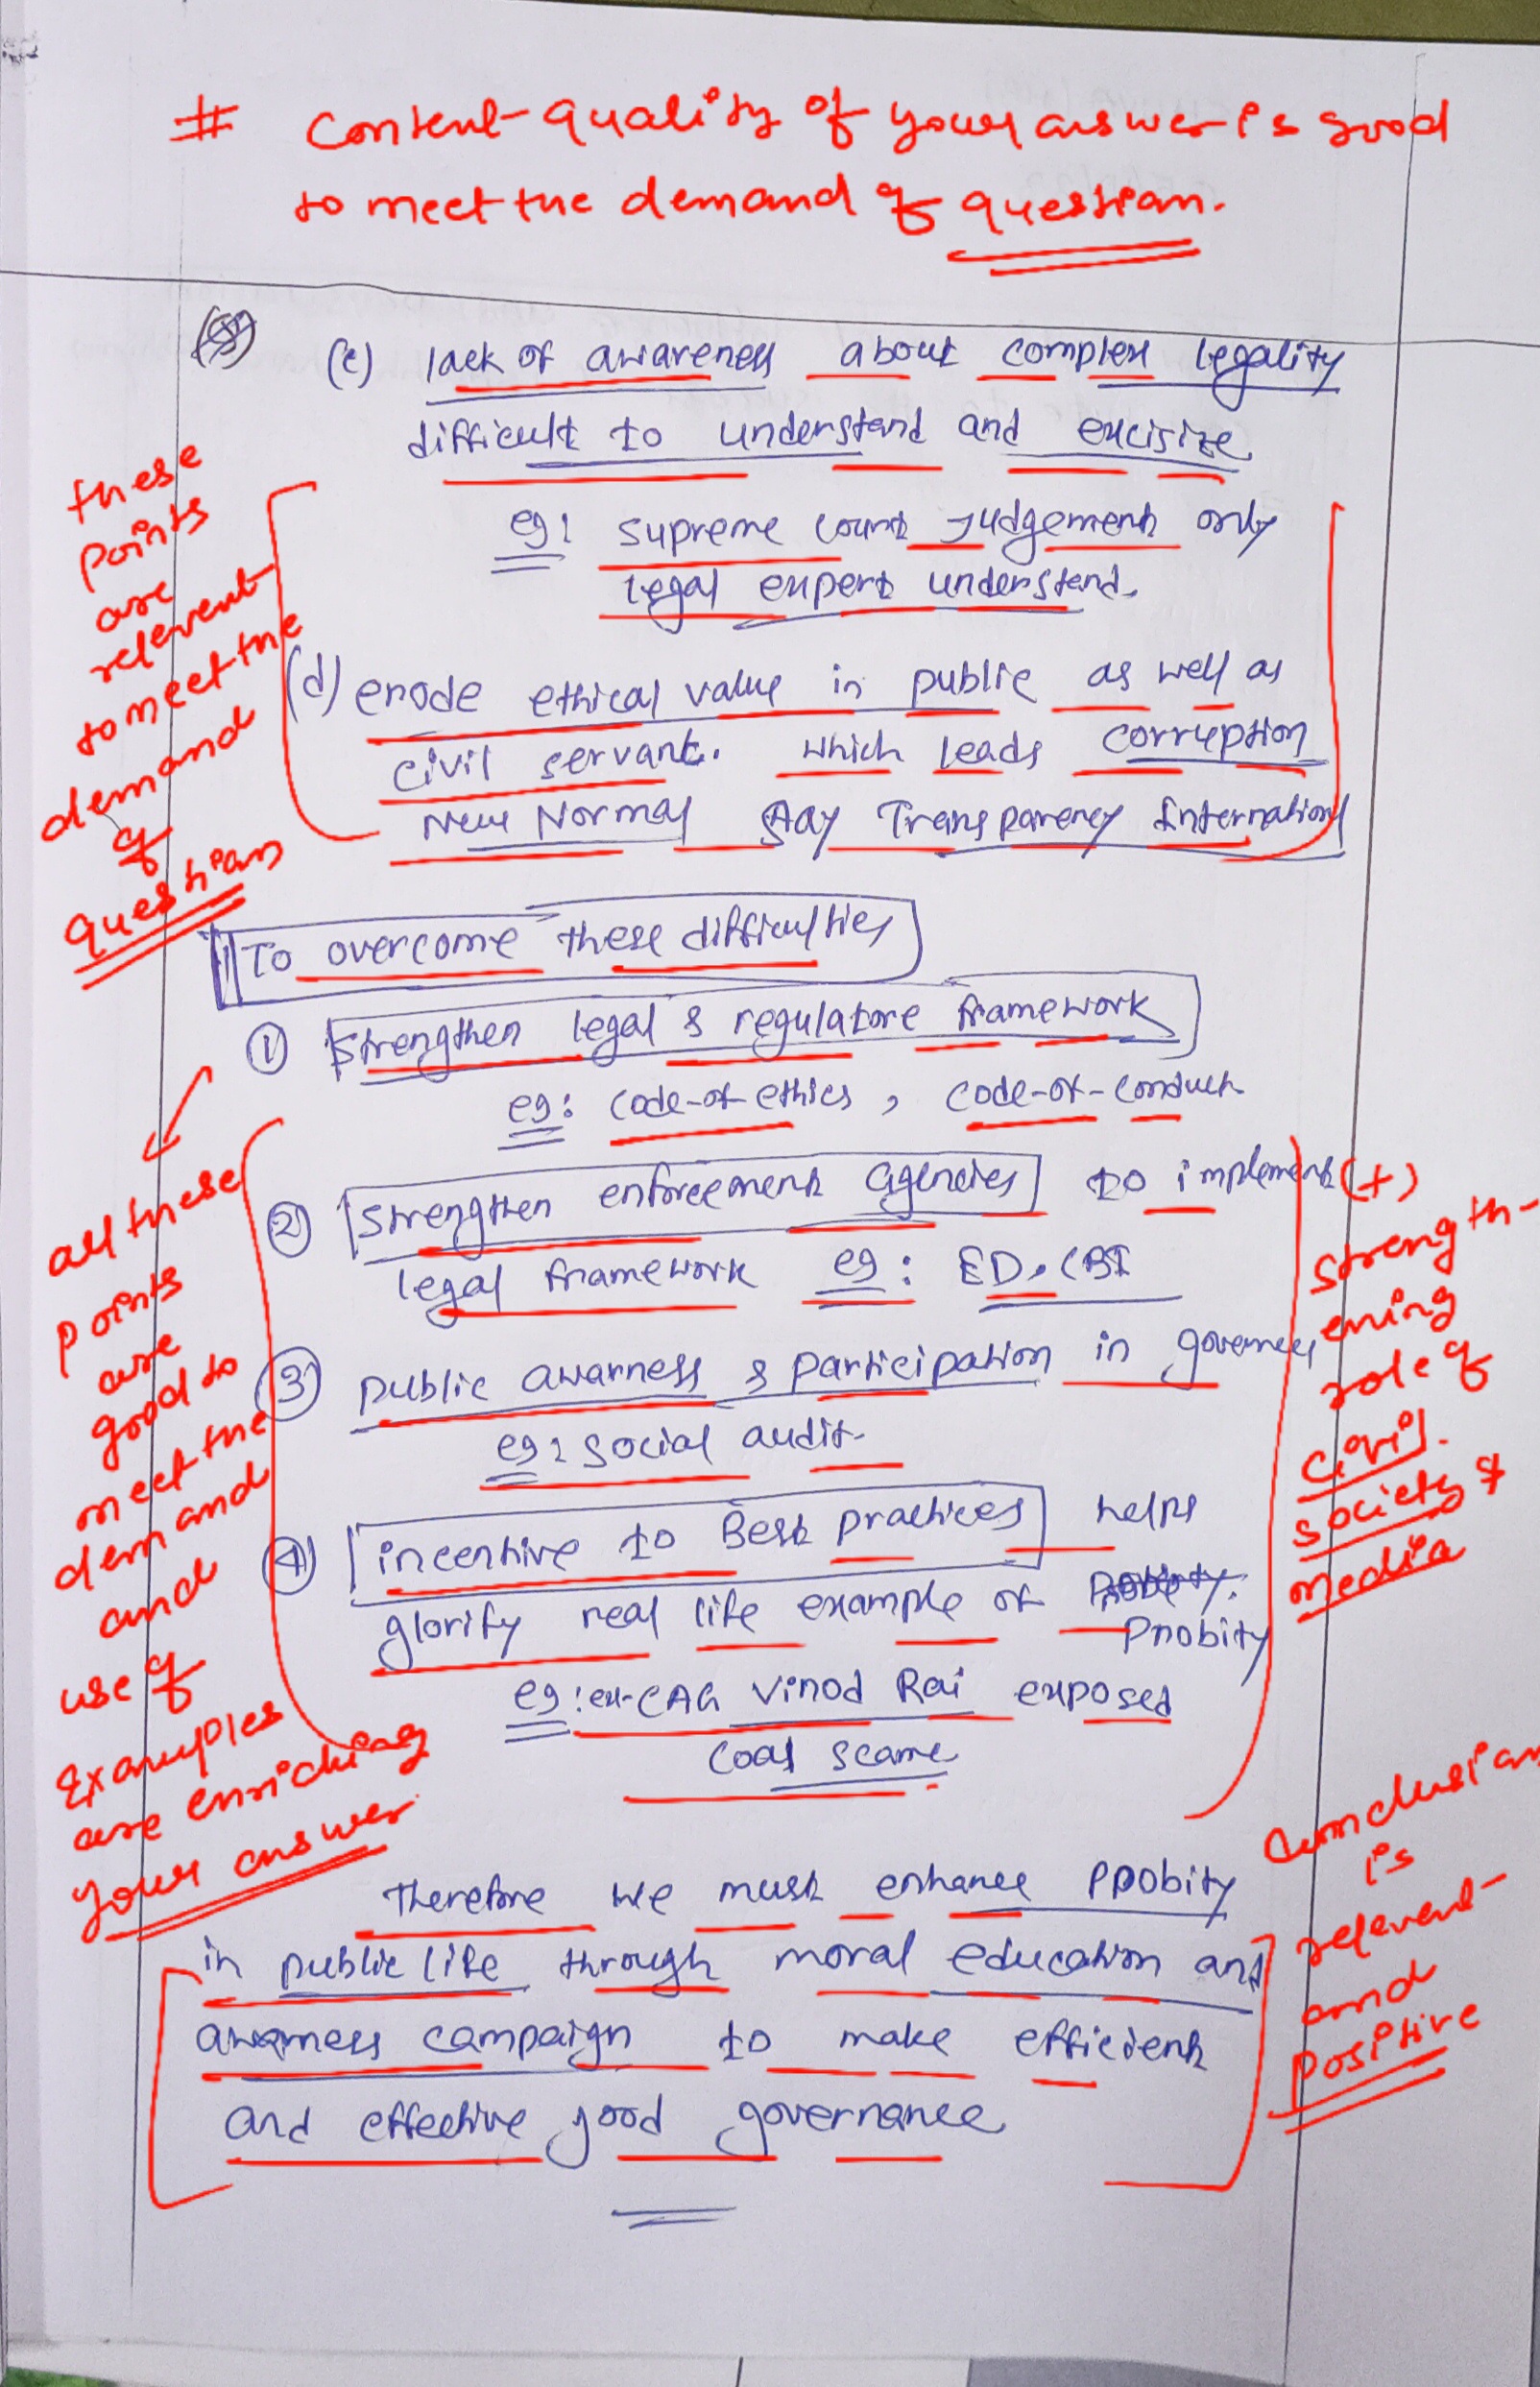 # Content-quality of your answer is good
to meet the demand of question.
(c) lack of awareness about complex legality
difficult to understand and excisize
eg: supreme court Judgement only
legal expert understand.
(d) erode ethical value in public as well as
civil servant. which leads corruption
New Normal say Transparency International
these
points
are
relevent
to meet the
demand
of
question
To overcome these difficulties
① Strengthen legal & regulatore framework
eg: code-of-ethics, code-of-conduct
② Strengthen enforcement agencies to implement
legal framework eg: ED, CBI
③ public awarness & participation in governes
eg: social audit
④ incentive to Best practices helps
glorify real life example of
Probity
eg: ex-CAG Vinod Rai exposed
coal scame
all these
points
are
good to
meet the
demand
and
use of
Examples
are enriching
your answer
(+)
Strength-
ening
role of
civil
society &
media
Therefore we must enhance probity
in public life through moral education and
awarness campaign to make efficient
and effective good governance
Conclusion
is
relevent
and
positive